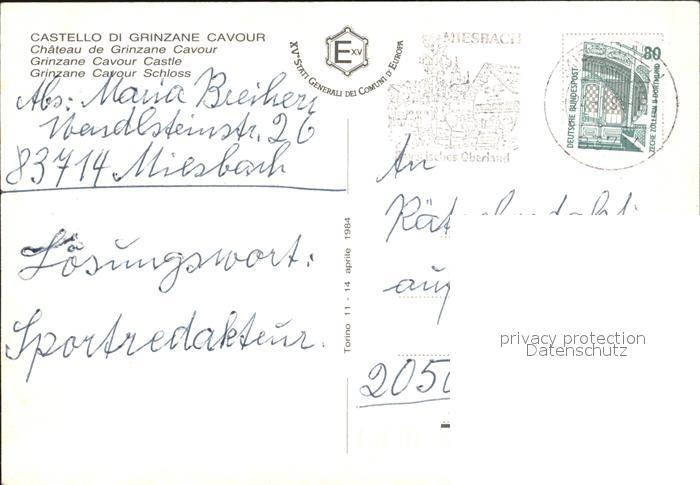 CASTELLO DI GRINZANE CAVOUR
Château de Grinzane Cavour
Grinzane Cavour Castle
Grinzane Cavour Schloss
E XV
XV STATI GENERALI DEI COMUNI D'EUROPA
Abs: Maria
Wendlsteinstr. 26
83714 Miesbach
Lösungswort:
Sportredakteur.
Torino 11 - 14 aprile 1984
MIESBACH
Oberland
80
DEUTSCHE BUNDESPOST
ZECHE ZOLLERN II · DORTMUND
An
2050
privacy protection
Datenschutz